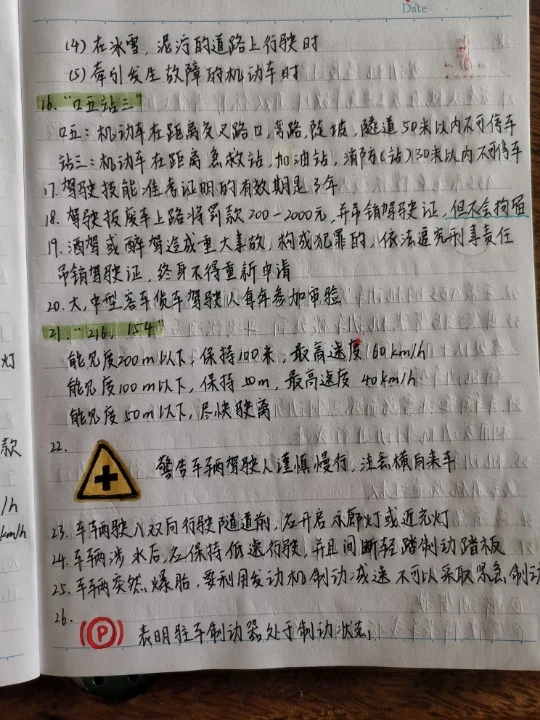 Date
(4) 在冰雪、泥泞的道路上行驶时
(5) 牵引发生故障的机动车时
16. "口五站三"
口五：机动车在距离交叉路口，弯路，陡坡，隧道50米以内不可停车
站三：机动车在距离急救站，加油站，消防(站)30米以内不可停车
17. 驾驶技能准考证明的有效期是3年
18. 驾驶报废车上路将罚款200-2000元，并吊销驾驶证，但不会拘留
19. 酒驾或醉驾造成重大事故，构成犯罪的，依法追究刑事责任
吊销驾驶证，终身不得重新申请
20. 大，中型客车货车驾驶人每年参加审验
21. "216, 154"
能见度200m以下，保持100米，最高速度60km/h
能见度100m以下，保持50m，最高速度 40km/h
能见度50m以下，尽快驶离
22. 警告车辆驾驶人谨慎慢行，注意横向来车
23. 车辆驶入双向行驶隧道前，应开启示廓灯或近光灯
24. 车辆涉水后，应保持低速行驶，并且间断轻踏制动踏板
25. 车辆突然爆胎，要利用发动机制动减速 不可以采取紧急制动
26. (P) 表明驻车制动器处于制动状态
灯
款
/h
km/h